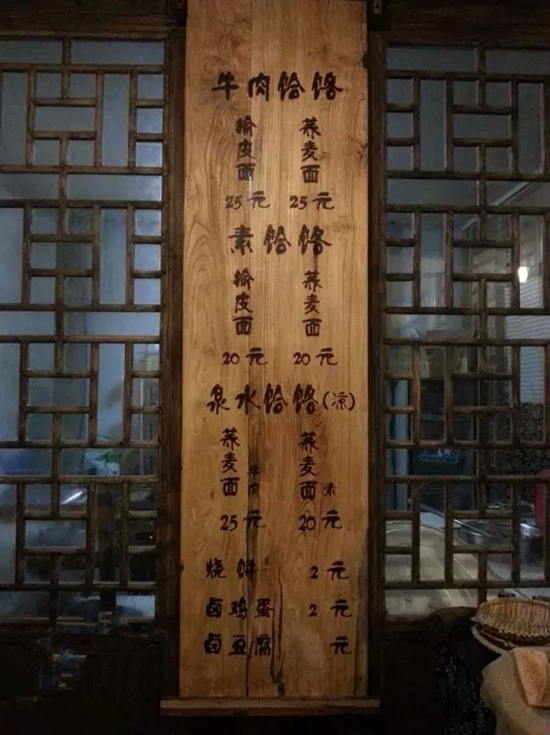 牛肉饸饹
榆皮面 荞麦面
25元 25元
素饸饹
榆皮面 荞麦面
20元 20元
泉水饸饹(凉)
荞麦面 牛肉 荞麦面 素
25元 20元
烧饼 2元
卤鸡蛋 2元
卤豆腐 元